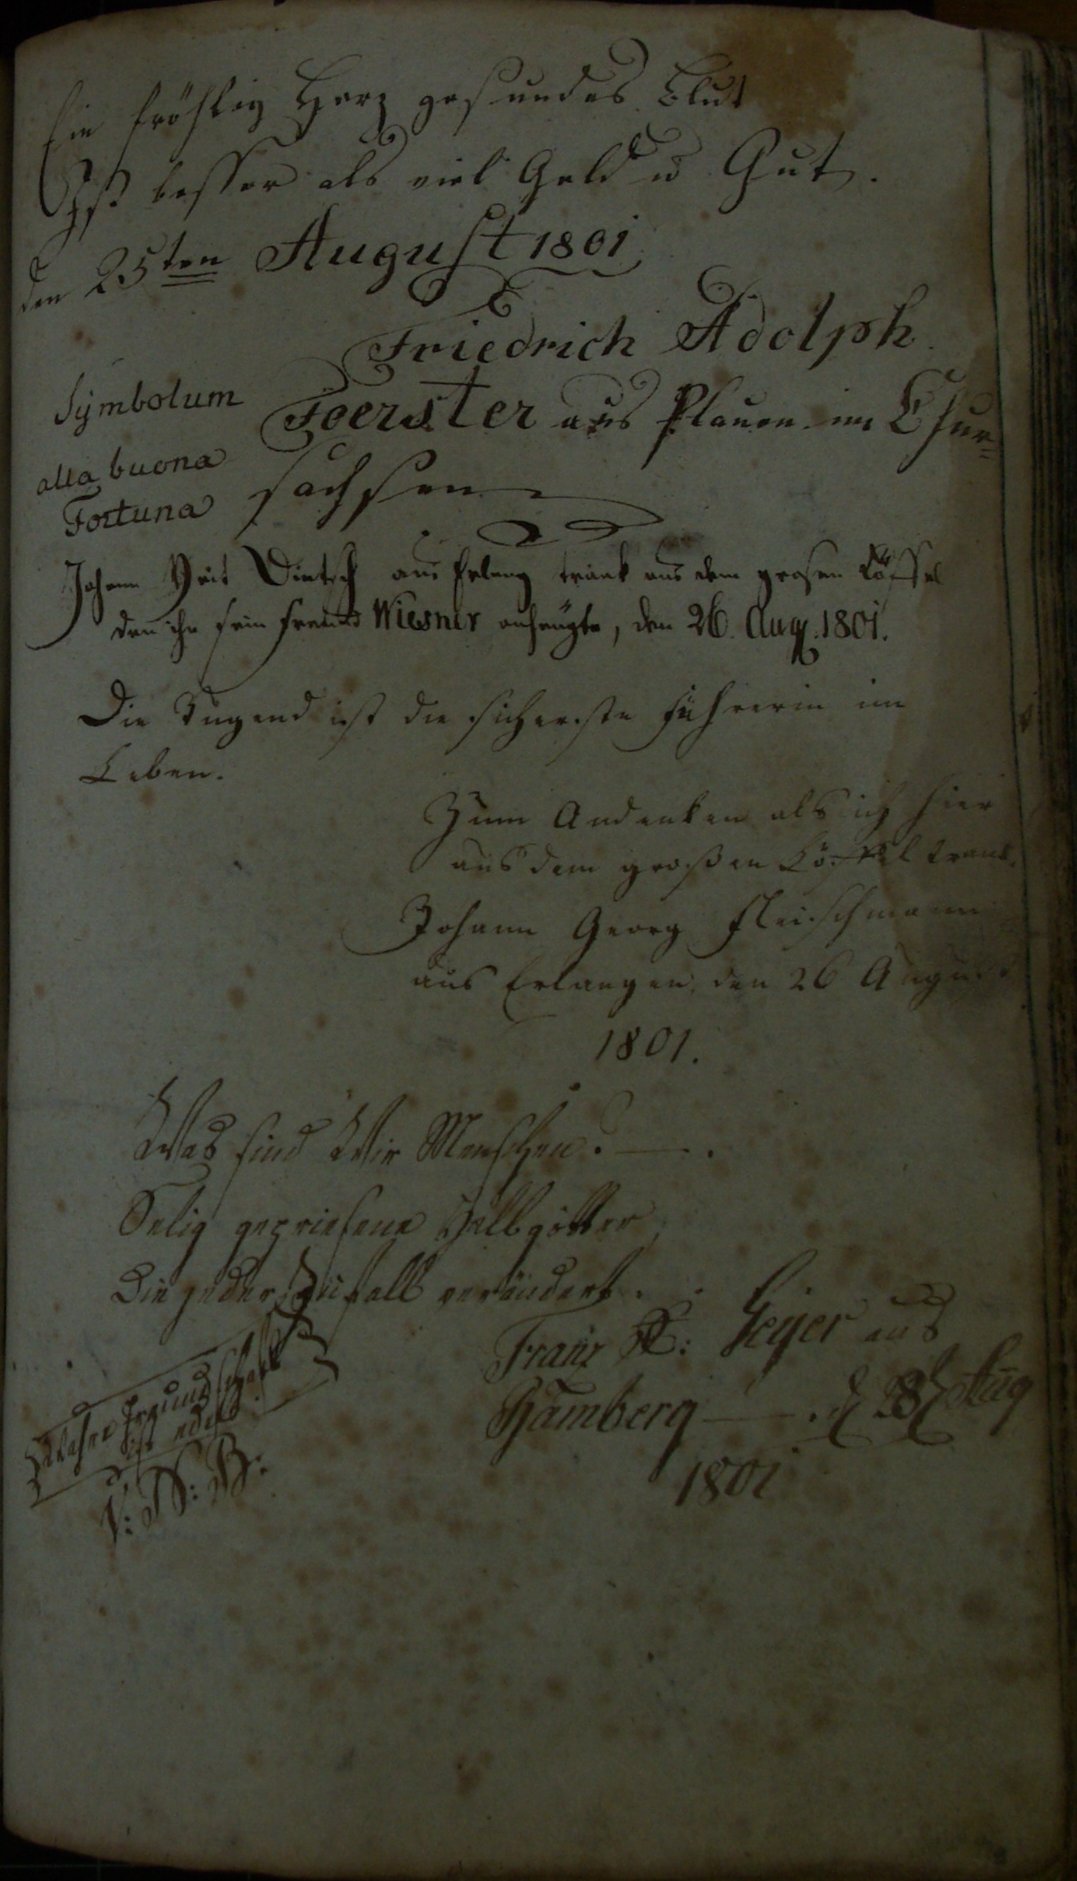 Ein fröhlig Herz gesundes Blut
Ist besser als viel Geld u Gut.
den 25ten August 1801
Friedrich Adolph
Foerster aus Plauen im Chur=
sachsen
Symbolum
alla buona
Fortuna
Johann Veit Dietsch aus Erlang trank aus dem grosen Löffel
den ihn sein Freund Wiesner anhengte, den 26. Aug. 1801.
Die Tugend ist die sicherste Führerin im
Leben.
Zum Andenken als ich hier
aus dem großen Löffel trank.
Johann Georg Fleischmann
aus Erlangen, den 26 August
1801.
Was sind Wir Menschen? —.
Selig gepriesene Halbgötter,
Die jeder Zufall verändert.
Franz Geyer aus
Bamberg — d 28 Aug
1801
Wahre Freundschaft
ist edel